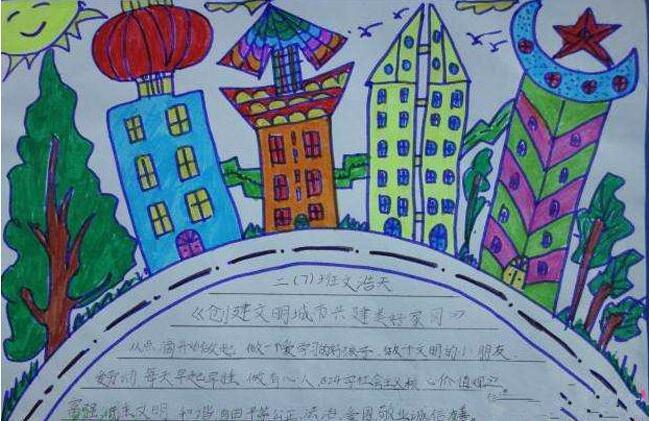 二(7)班文浩天
《创建文明城市共建美好家园》
做一个爱学习的好孩子、做个文明的小朋友、
每天早起早睡、做有心人、24字社会主义核心价值观
富强、民主、文明、和谐、自由、平等、公正、法治、爱国、敬业、诚信、友善。